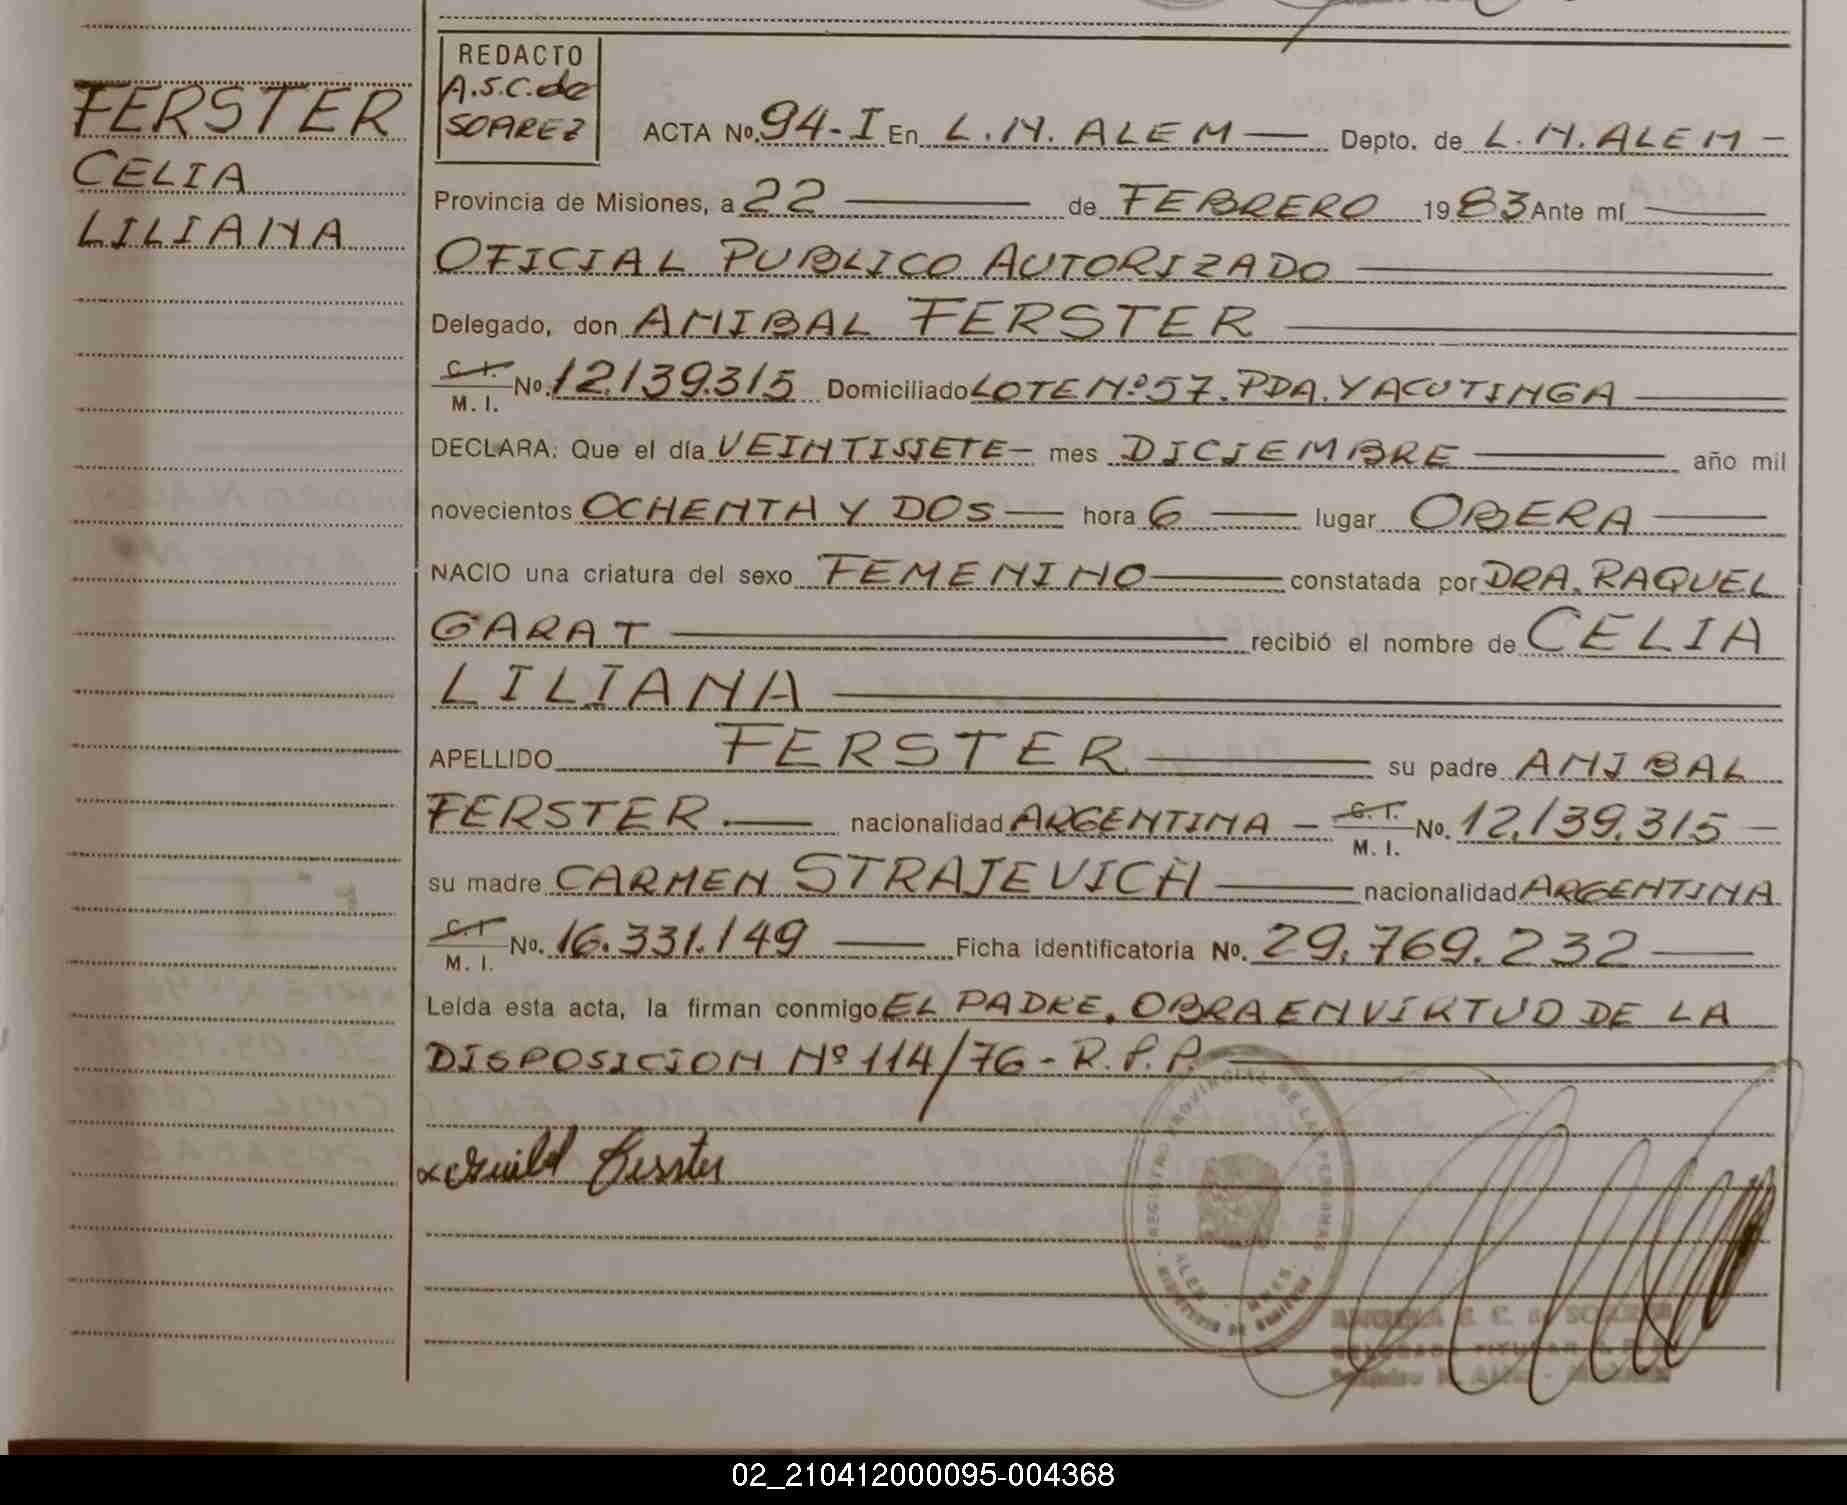 FERSTER
CELIA
LILIANA
REDACTO
A.S.C. de
SOAREZ
ACTA No. 94-I En L.N. ALEM — Depto. de L.N. ALEM —
Provincia de Misiones, a 22 — de FEBRERO 1983 Ante mí —
OFICIAL PUBLICO AUTORIZADO —
Delegado, don ANIBAL FERSTER —
C.I. M. I. No. 12.139.315 Domiciliado LOTE Nº 57. PDA. YACUTINGA —
DECLARA: Que el día VEINTISIETE — mes DICIEMBRE — año mil
novecientos OCHENTA Y DOS — hora 6 — lugar OBERA —
NACIO una criatura del sexo FEMENINO — constatada por DRA. RAQUEL
GARAT — recibió el nombre de CELIA
LILIANA —
APELLIDO FERSTER — su padre ANIBAL
FERSTER. — nacionalidad ARGENTINA — C.I. M. I. No. 12.139.315 —
su madre CARMEN STRAJEVICH — nacionalidad ARGENTINA
C.I. M. I. No. 16.331.149 — Ficha identificatoria No. 29.769.232 —
Leída esta acta, la firman conmigo EL PADRE. OBRA EN VIRTUD DE LA
DISPOSICION Nº 114/76 - R.P.P. —
Ferster
REGISTRO PROVINCIAL DE LAS PERSONAS
ALEM - MNES.
02_210412000095-004368